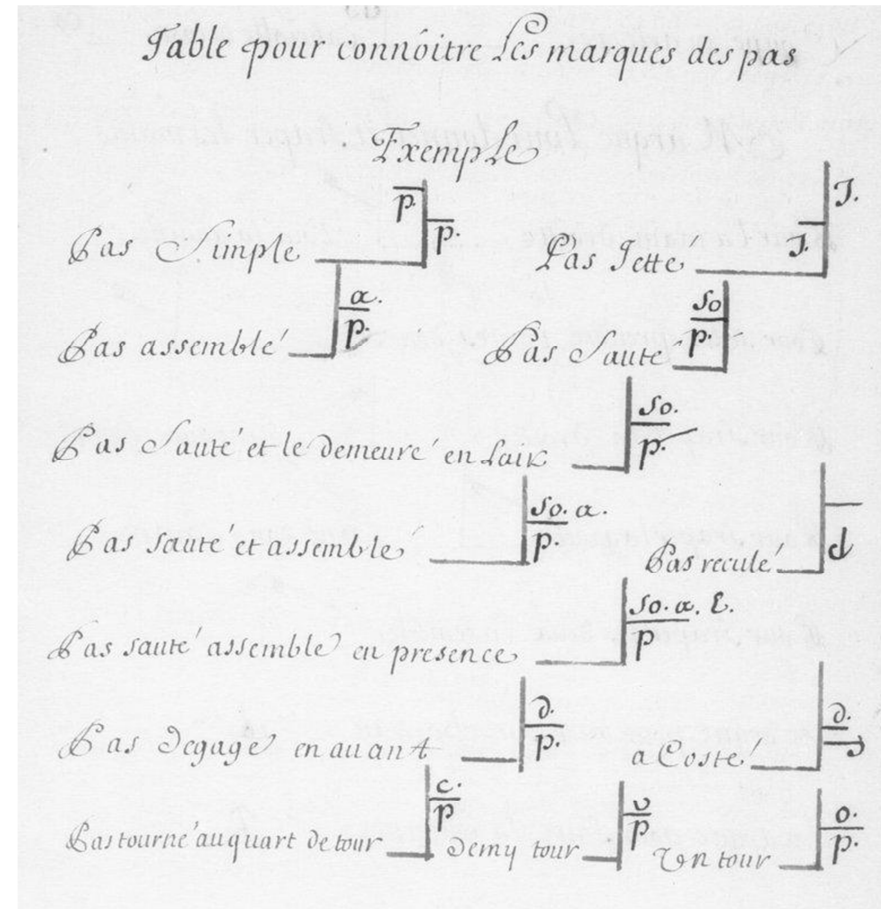 Table pour connôitre Les marques des pas
Exemple
Pas Simple p. p.
Pas Jette J. J.
Pas assemblé a. p.
Pas Sauté So p.
Pas Sauté et le demeuré en Lair So. p.
Pas sauté et assemblé So. a. p.
Pas reculé d
Pas sauté assemblé en presence So. a. E. p
Pas degagé en avant d. p.
a Costé d.
Pas tourné au quart de tour c. p
Demy tour υ p
Un tour o. p.